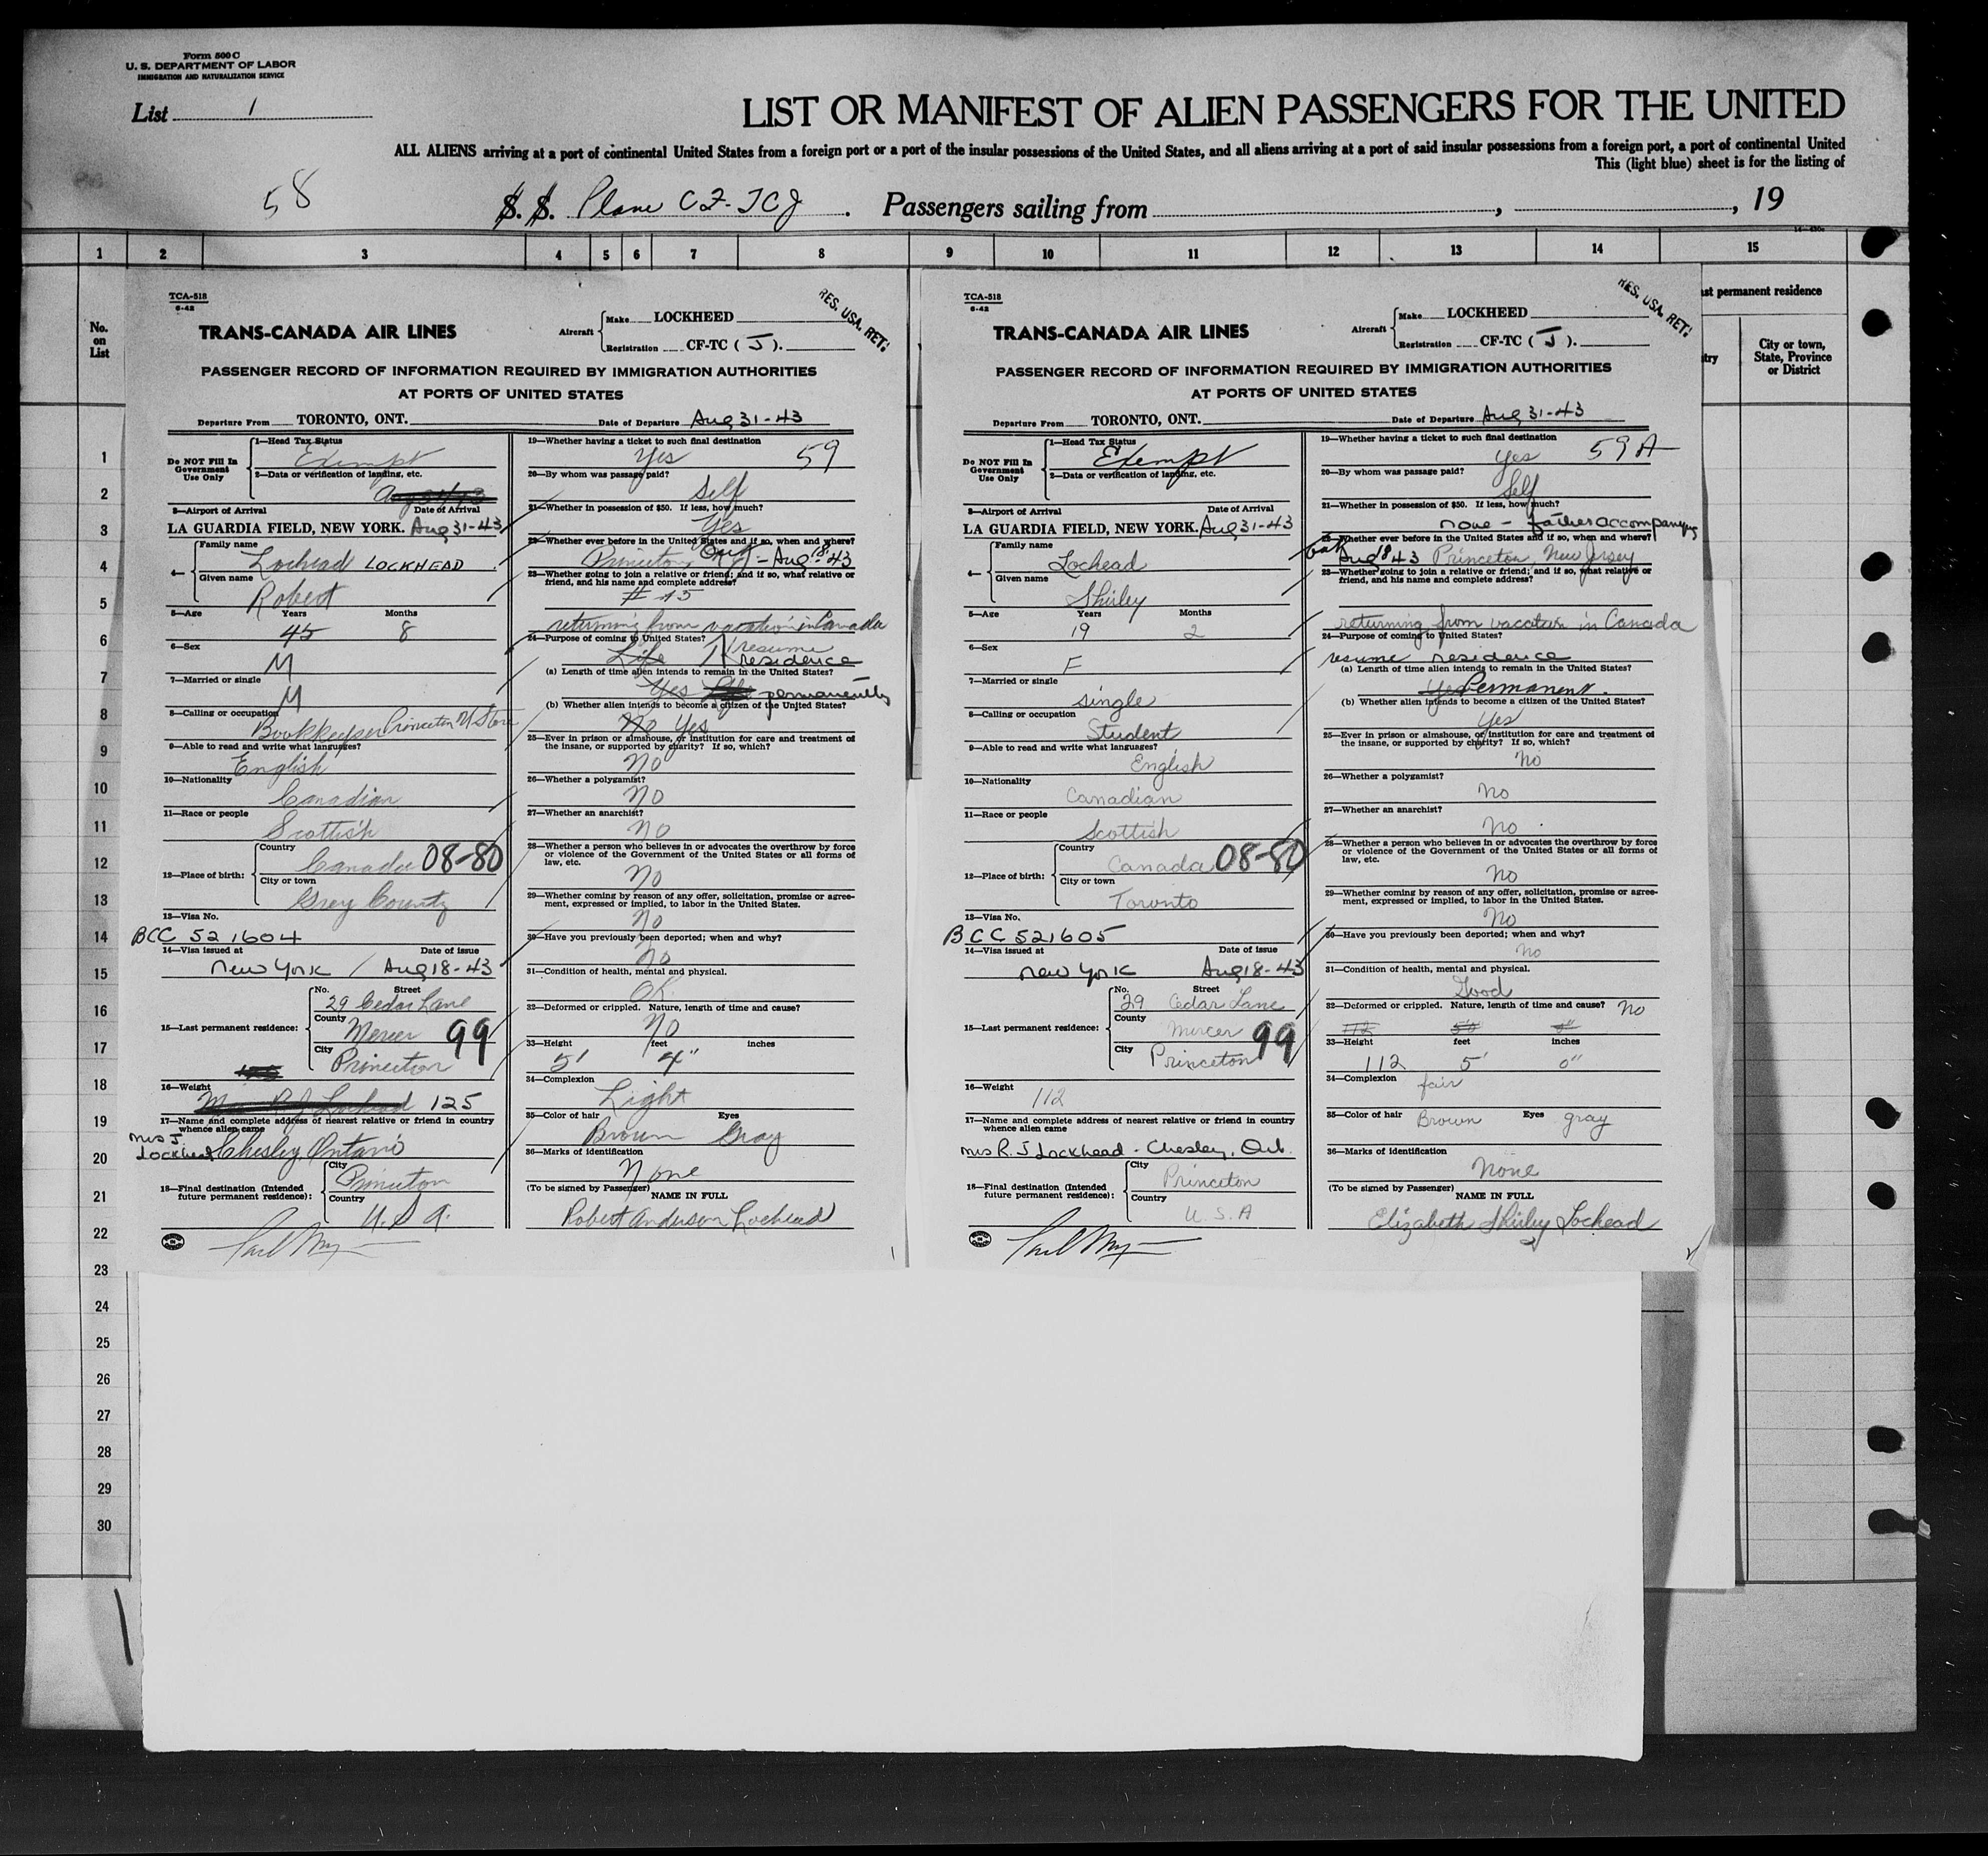 Form 500 C
U. S. DEPARTMENT OF LABOR
IMMIGRATION AND NATURALIZATION SERVICE
List 1
LIST OR MANIFEST OF ALIEN PASSENGERS FOR THE UNITED
ALL ALIENS arriving at a port of continental United States from a foreign port or a port of the insular possessions of the United States, and all aliens arriving at a port of said insular possessions from a foreign port, a port of continental United
This (light blue) sheet is for the listing of
58
S. S. Plane CF-TCJ. Passengers sailing from , , 19
1 2 3 4 5 6 7 8 9 10 11 12 13 14 15
No.
on
List
st permanent residence
try
City or town,
State, Province
or District
1
2
3
4
5
6
7
8
9
10
11
12
13
14
15
16
17
18
19
20
21
22
23
24
25
26
27
28
29
30
TCA-518
6-42
RES. USA. RET.
TRANS-CANADA AIR LINES
Aircraft
Make LOCKHEED
Registration CF-TC ( J ).
PASSENGER RECORD OF INFORMATION REQUIRED BY IMMIGRATION AUTHORITIES
AT PORTS OF UNITED STATES
Departure From TORONTO, ONT. Date of Departure Aug 31-43
Do NOT Fill In
Government
Use Only
1—Head Tax Status
Exempt
2—Data or verification of landing, etc.
3—Airport of Arrival Date of Arrival
LA GUARDIA FIELD, NEW YORK. Aug 31-43
4—
Family name
Lochead LOCKHEAD
Given name
Robert
5—Age Years Months
45 8
6—Sex
M
7—Married or single
M
8—Calling or occupation
Bookkeeper Princeton U Store
9—Able to read and write what languages?
English
10—Nationality
Canadian
11—Race or people
Scottish
12—Place of birth:
Country
Canada 08-80
City or town
Grey County
13—Visa No.
BCC 521604
14—Visa issued at Date of issue
New York / Aug 18-43
15—Last permanent residence:
No. Street
29 Cedar Lane
County
Mercer 99
City
Princeton
16—Weight
Mrs R J Lochead 125
17—Name and complete address of nearest relative or friend in country
whence alien came
Mrs J.
Lockhead Chesley, Ontario
18—Final destination (Intended
future permanent residence):
City
Princeton
Country
U. S. A.
19—Whether having a ticket to such final destination
Yes 59
20—By whom was passage paid?
Self
21—Whether in possession of $50. If less, how much?
Yes
22—Whether ever before in the United States and if so, when and where?
Princeton Aug 18-43
23—Whether going to join a relative or friend; and if so, what relative or
friend, and his name and complete address?
# 15
returning from vacation in Canada
24—Purpose of coming to United States?
Life resume
residence
(a) Length of time alien intends to remain in the United States?
Yes Life permanently
(b) Whether alien intends to become a citizen of the United States?
No Yes
25—Ever in prison or almshouse, or institution for care and treatment of
the insane, or supported by charity? If so, which?
No
26—Whether a polygamist?
No
27—Whether an anarchist?
No
28—Whether a person who believes in or advocates the overthrow by force
or violence of the Government of the United States or all forms of
law, etc.
No
29—Whether coming by reason of any offer, solicitation, promise or agree-
ment, expressed or implied, to labor in the United States.
No
30—Have you previously been deported; when and why?
No
31—Condition of health, mental and physical.
OK
32—Deformed or crippled. Nature, length of time and cause?
No
33—Height feet inches
5' 4"
34—Complexion
Light
35—Color of hair Eyes
Brown Gray
36—Marks of identification
None
(To be signed by Passenger) NAME IN FULL
Robert Anderson Lochead
TCA-518
6-42
RES. USA. RET.
TRANS-CANADA AIR LINES
Aircraft
Make LOCKHEED
Registration CF-TC ( J ).
PASSENGER RECORD OF INFORMATION REQUIRED BY IMMIGRATION AUTHORITIES
AT PORTS OF UNITED STATES
Departure From TORONTO, ONT. Date of Departure Aug 31-43
Do NOT Fill In
Government
Use Only
1—Head Tax Status
Exempt
2—Data or verification of landing, etc.
3—Airport of Arrival Date of Arrival
LA GUARDIA FIELD, NEW YORK. Aug 31-43
4—
Family name
Lochead
Given name
Shirley
5—Age Years Months
19 2
6—Sex
F
7—Married or single
single
8—Calling or occupation
Student
9—Able to read and write what languages?
English
10—Nationality
Canadian
11—Race or people
Scottish
12—Place of birth:
Country
Canada 08-80
City or town
Toronto
13—Visa No.
BCC 521605
14—Visa issued at Date of issue
New York Aug 18-43
15—Last permanent residence:
No. Street
29 Cedar Lane
County
Mercer 99
City
Princeton
16—Weight
112
17—Name and complete address of nearest relative or friend in country
whence alien came
Mrs R. J Lockhead - Chesley, Ont.
18—Final destination (Intended
future permanent residence):
City
Princeton
Country
U. S. A
19—Whether having a ticket to such final destination
Yes 59A
20—By whom was passage paid?
Self
21—Whether in possession of $50. If less, how much?
none - father accompanying
22—Whether ever before in the United States and if so, when and where?
Aug 18 43 Princeton, New Jersey
23—Whether going to join a relative or friend; and if so, what relative or
friend, and his name and complete address?
returning from vacation in Canada
24—Purpose of coming to United States?
resume residence
(a) Length of time alien intends to remain in the United States?
Yes Permanent.
(b) Whether alien intends to become a citizen of the United States?
Yes
25—Ever in prison or almshouse, or institution for care and treatment of
the insane, or supported by charity? If so, which?
No
26—Whether a polygamist?
No
27—Whether an anarchist?
No
28—Whether a person who believes in or advocates the overthrow by force
or violence of the Government of the United States or all forms of
law, etc.
No
29—Whether coming by reason of any offer, solicitation, promise or agree-
ment, expressed or implied, to labor in the United States.
No
30—Have you previously been deported; when and why?
No
31—Condition of health, mental and physical.
Good
32—Deformed or crippled. Nature, length of time and cause? No
112 5'0 0"
33—Height feet inches
112 5' 0"
34—Complexion
fair
35—Color of hair Eyes
Brown gray
36—Marks of identification
None
(To be signed by Passenger) NAME IN FULL
Elizabeth Shirley Lochead